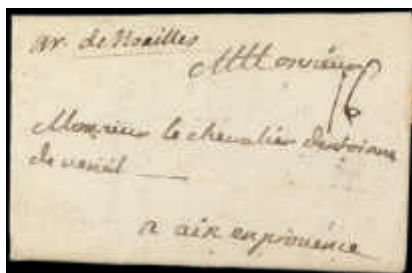 ar. de Noailles
A Monsieur
Monsieur le chevalier
de
a aix en provence